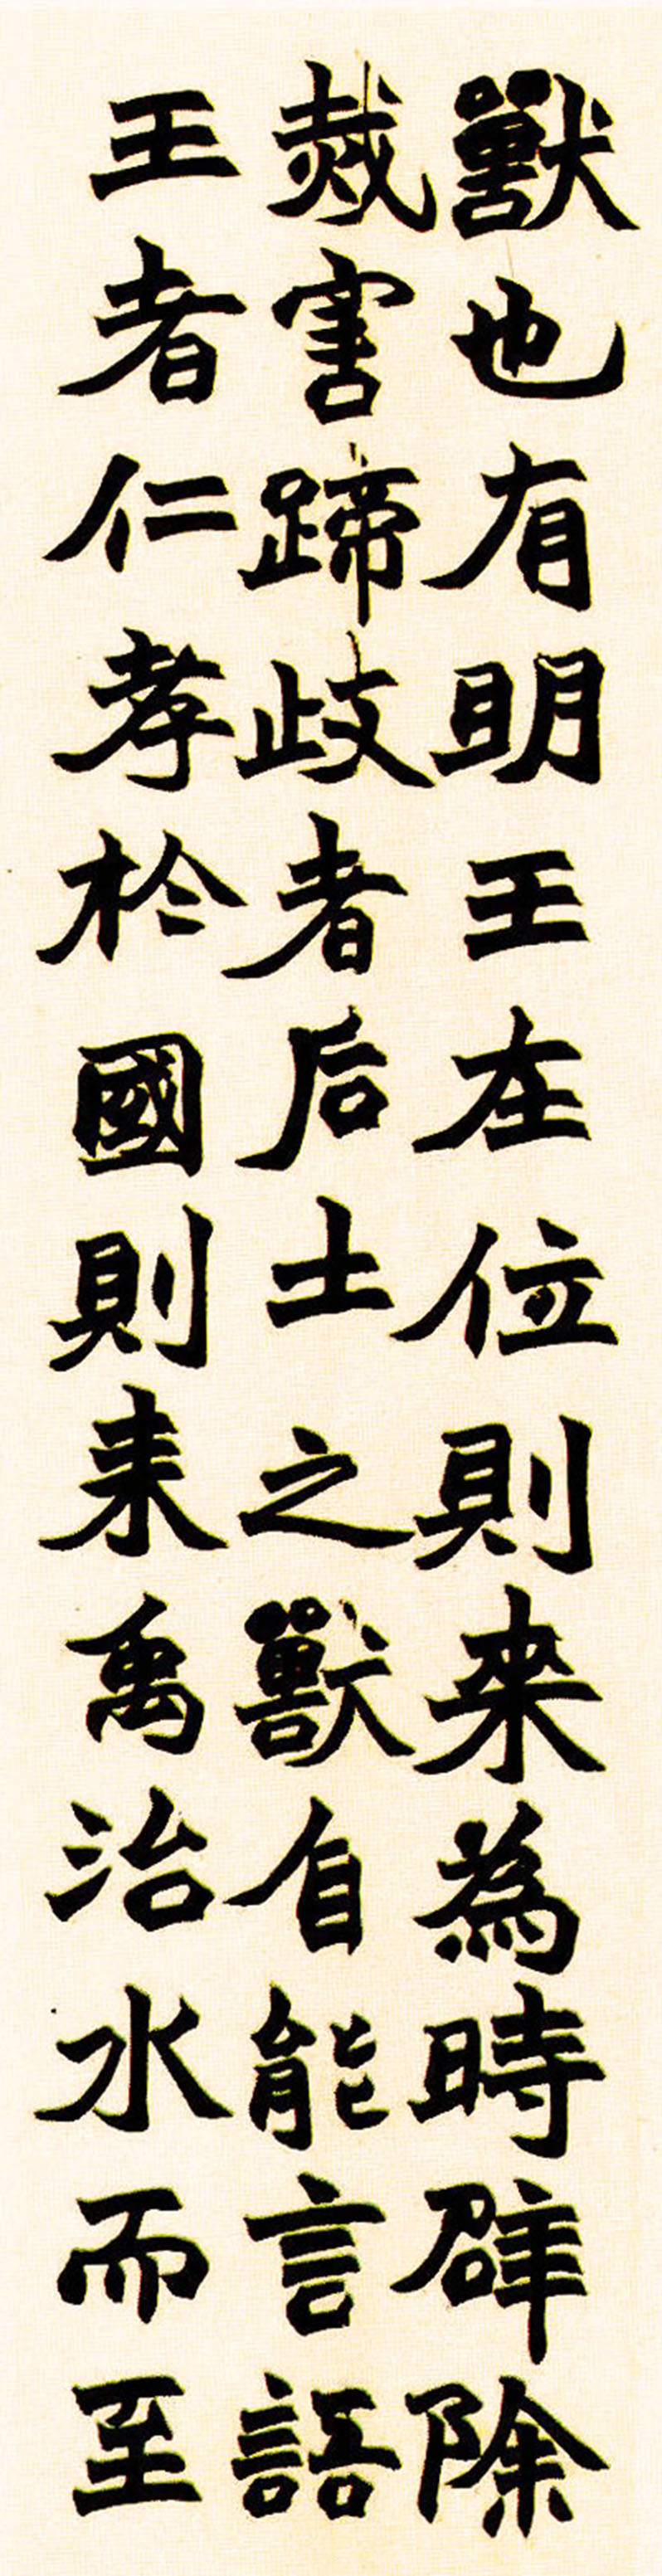 獸也有明王在位則來為時辟除
烖害蹄歧者后土之獸自能言語
王者仁孝於國則来禹治水而至